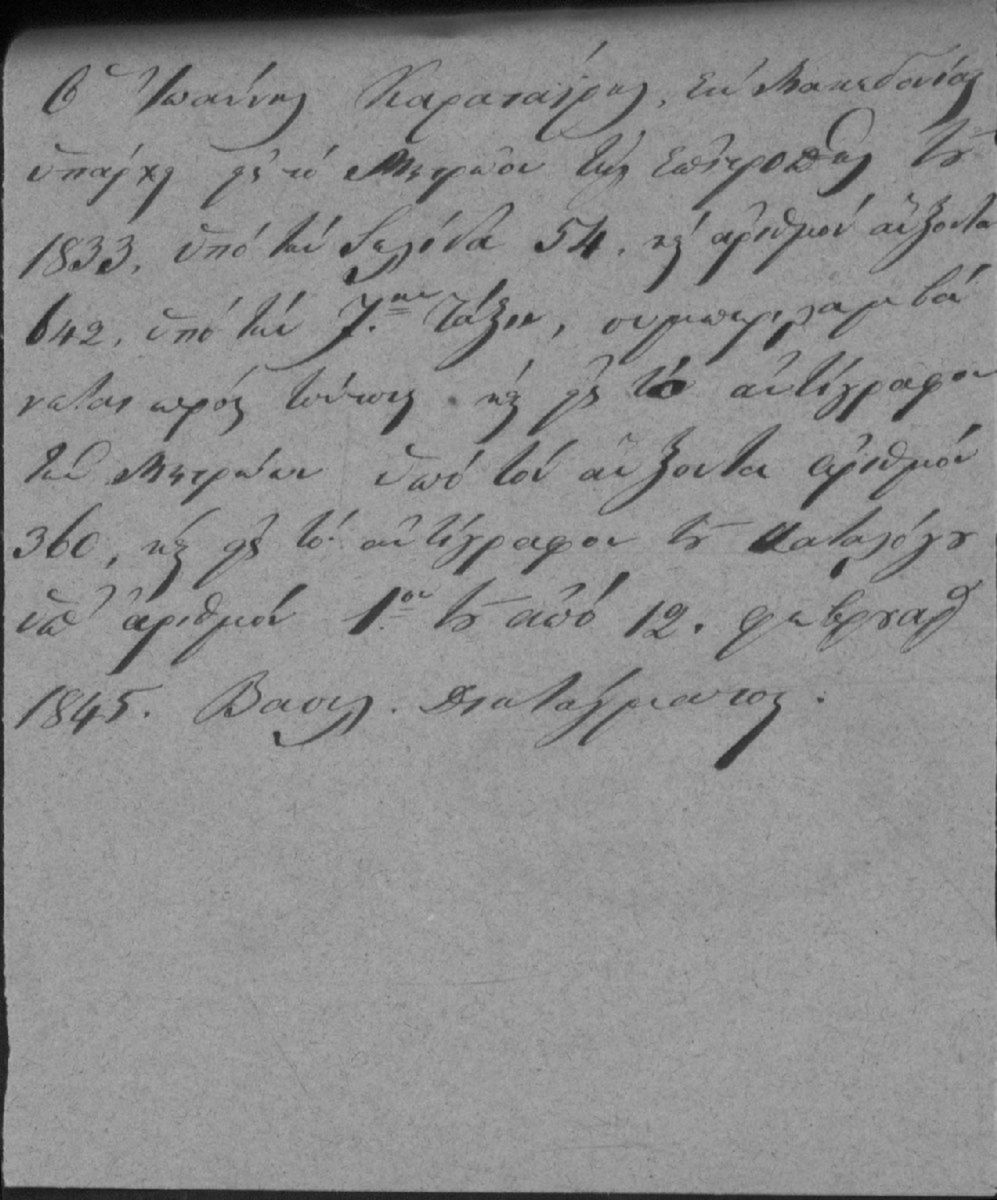 Ὁ Ἰωάννης Καρατάϊρης, ἐκ Μακεδονίας
ὑπάρχει εἰς τὸ Μητρῶον τῆς Ἐπιτροπῆς τοῦ
1833, ὑπὸ τὴν Σελίδα 54, καὶ ἀριθμὸν αὔξοντα
642, ὑπὸ τὴν 7.ην τάξιν, συμπεριλαμβά
νεται πρὸς τούτοις καὶ εἰς τὸ ἀντίγραφον
τῶν Μητρώων ὑπὸ τὸν αὔξοντα ἀριθμὸν
360, καὶ εἰς τὸ ἀντίγραφον τοῦ Καταλόγου
ὑπ' ἀριθμὸν 1.ον τοῦ ἀπὸ 12. Φεβρουαρ
1845. Βασιλ. Διατάγματος.